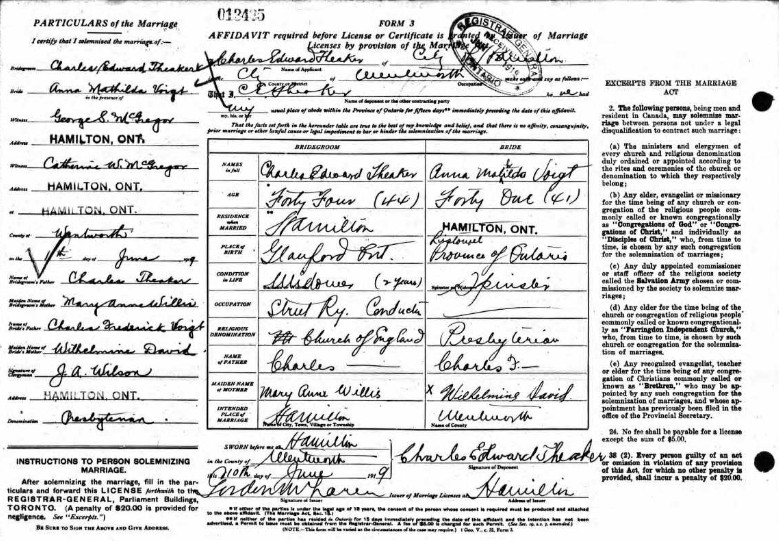 PARTICULARS of the Marriage
I certify that I solemnized the marriage of:—
Bridegroom Charles Edward Theaker
Bride Anna Mathilda Voigt
in the presence of
Witness George S. McGregor
Address HAMILTON, ONT.
Witness Catherine W. McGregor
Address HAMILTON, ONT.
at HAMILTON, ONT.
County of Wentworth
in the 11th day of June 19
Name of Bridegroom's Father Charles Theaker
Maiden Name of Bridegroom's Mother Mary Anne Willis
Name of Bride's Father Charles Frederick Voigt
Maiden Name of Bride's Mother Wilhelmina David
Signature of Clergyman J. A. Wilson
Address HAMILTON, ONT.
Denomination Presbyterian
INSTRUCTIONS TO PERSON SOLEMNIZING
MARRIAGE.
After solemnizing the marriage, fill in the par-
ticulars and forward this LICENSE forthwith to the
REGISTRAR-GENERAL, Parliament Buildings,
TORONTO. (A penalty of $20.00 is provided for
negligence. See "Excerpts.")
BE SURE TO SIGN THE ABOVE AND GIVE ADDRESS.
012495
FORM 3
AFFIDAVIT required before License or Certificate is granted by Issuer of Marriage
Licenses by provision of the Marriage
REGISTRAR GENERAL
RECEIVED
ONTARIO
Charles Edward Theaker of City of Hamilton
Name of Applicant.
County or District Wentworth Occupation make oath and say as follows:—
That I, C E Theaker
Name of deponent or the other contracting party
my usual place of abode within the Province of Ontario for fifteen days immediately preceding the date of this affidavit.
my, his or her
That the facts set forth in the hereunder table are true to the best of my knowledge and belief, and that there is no affinity, consanguinity,
prior marriage or other lawful cause or legal impediment to bar or hinder the solemnization of the marriage.
BRIDEGROOM BRIDE
NAMES in full Charles Edward Theaker Anna Matilda Voigt
AGE Forty Four (44) Forty One (41)
RESIDENCE WHEN MARRIED Hamilton HAMILTON, ONT.
PLACE OF BIRTH Glanford Ont. Listowel Province of Ontario
CONDITION IN LIFE Widower (2 years) Spinster
OCCUPATION Street Ry. Conductor
RELIGIOUS DENOMINATION Church of England Presbyterian
NAME OF FATHER Charles — Charles F—
MAIDEN NAME OF MOTHER Mary Anne Willis x Wilhelmina David
INTENDED PLACE OF MARRIAGE Hamilton Wentworth
Name of City, Town, Village or Township Name of County
SWORN before me at Hamilton
in the County of Wentworth
this 10th day of June 1919
Charles Edward Theaker
Signature of Deponent
Gordon McLaren Issuer of Marriage Licenses at Hamilton
Signature of Issuer Address of Issuer
*If either of the parties is under the legal age of 18 years, the consent of the person whose consent is required must be produced and attached
to the above affidavit. (The Marriage Act, Sec. 15.)
**If neither of the parties has resided in Ontario for 15 days immediately preceding the date of this affidavit and the intention has not been
advertised, a Permit to issue must be obtained from the Registrar-General. A fee of $5.00 is charged for such Permit.
(NOTE.—This form will be varied as the circumstances of the case may require.) 1 Geo. V., c. 32, Form 3.
EXCERPTS FROM THE MARRIAGE
ACT
2. The following persons, being men and
resident in Canada, may solemnize mar-
riage between persons not under a legal
disqualification to contract such marriage:
(a) The ministers and clergymen of
every church and religious denomination
duly ordained or appointed according to
the rites and ceremonies of the church or
denomination to which they respectively
belong;
(b) Any elder, evangelist or missionary
for the time being of any church or con-
gregation of the religious people com-
monly called or known congregationally
as "Congregations of God" or "Congre-
gations of Christ," and individually as
"Disciples of Christ," who, from time to
time, is chosen by any such congregation
for the solemnization of marriages;
(c) Any duly appointed commissioner
or staff officer of the religious society
called the Salvation Army chosen or com-
missioned by the society to solemnize mar-
riages;
(d) Any elder for the time being of the
church or congregation of religious people
commonly called or known congregational-
ly as "Farringdon Independent Church,"
who, from time to time, is chosen by such
church or congregation for the solemniza-
tion of marriages.
(e) Any recognized evangelist, teacher
or elder for the time being of any con-
gregation of Christians commonly called or
known as "Brethren," who may be ap-
pointed by any such congregation for the
solemnization of marriages, and whose ap-
pointment has previously been filed in the
office of the Provincial Secretary.
24. No fee shall be payable for a license
except the sum of $5.00.
38 (2). Every person guilty of an act
or omission in violation of any provision
of this Act, for which no other penalty is
provided, shall incur a penalty of $20.00.